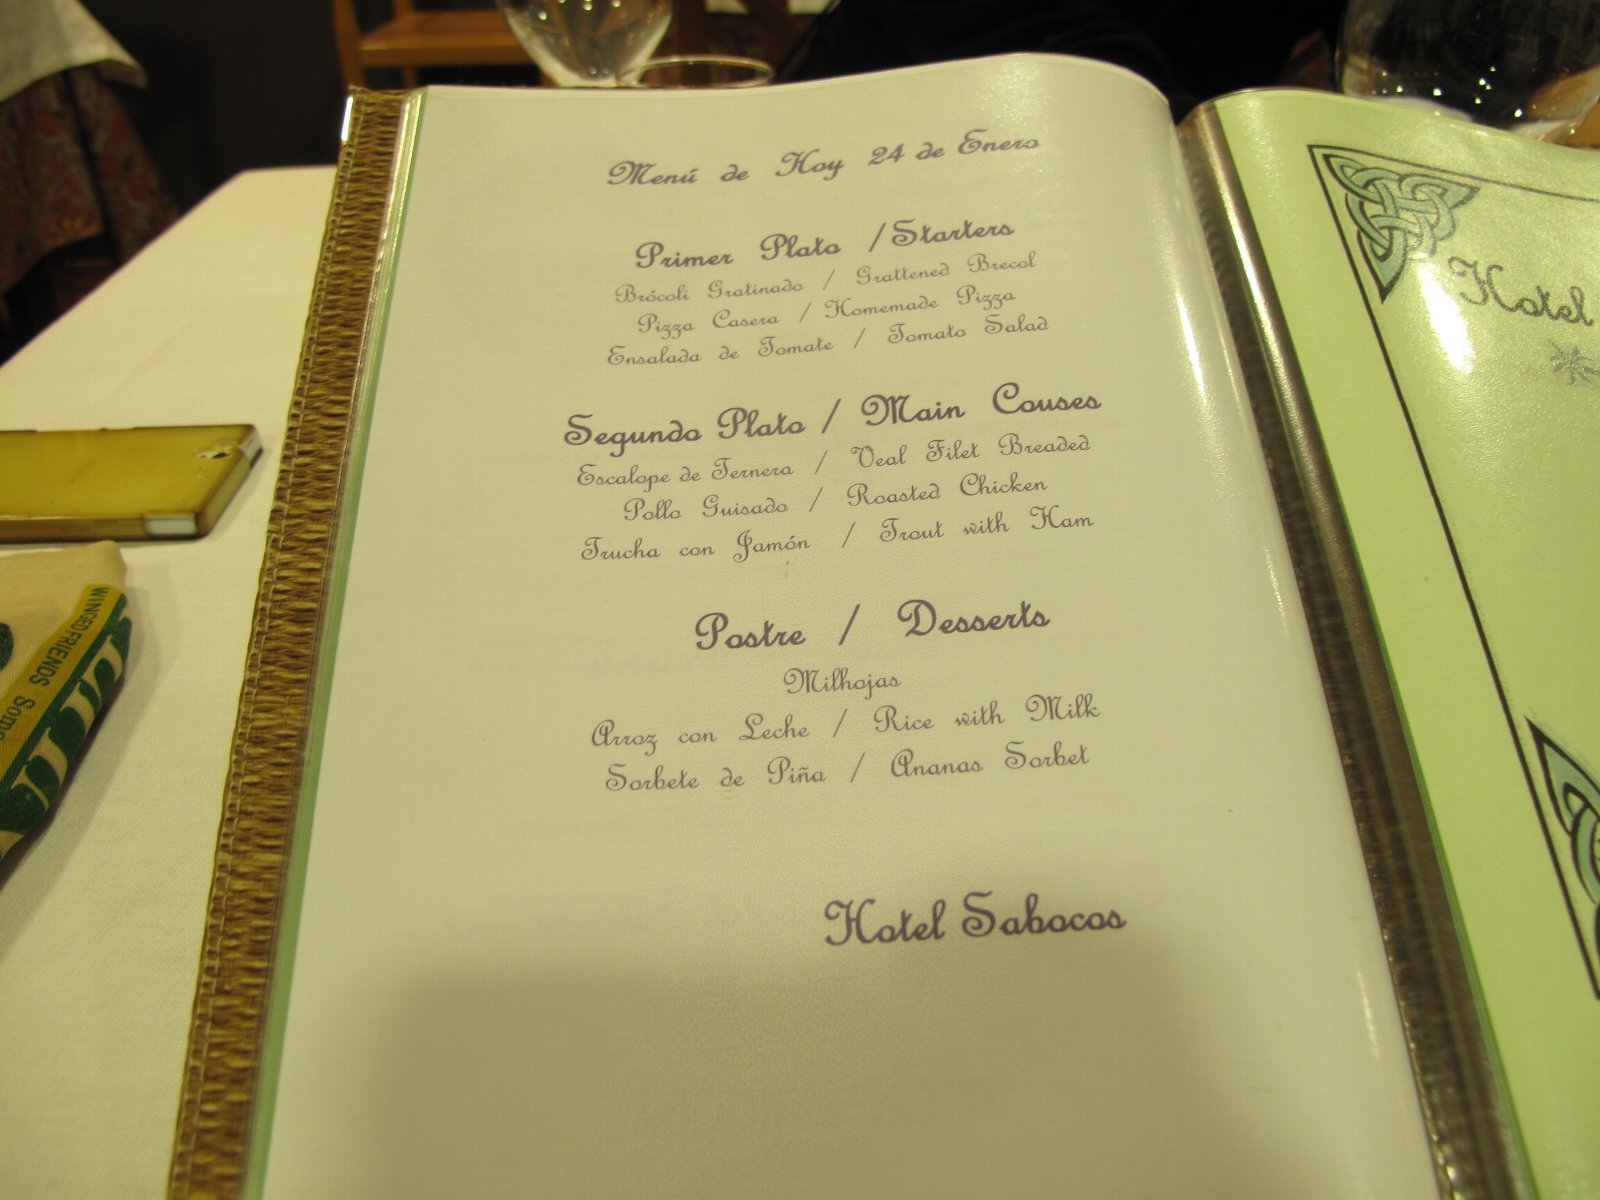 Menú de Hoy 24 de Enero
Primer Plato / Starters
Brócoli Gratinado / Grattened Brecol
Pizza Casera / Homemade Pizza
Ensalada de Tomate / Tomato Salad
Segundo Plato / Main Couses
Escalope de Ternera / Veal Filet Breaded
Pollo Guisado / Roasted Chicken
Trucha con Jamón / Trout with Ham
Postre / Desserts
Milhojas
Arroz con Leche / Rice with Milk
Sorbete de Piña / Ananas Sorbet
Hotel Sabocos
Hotel
WINGED FRIENDS